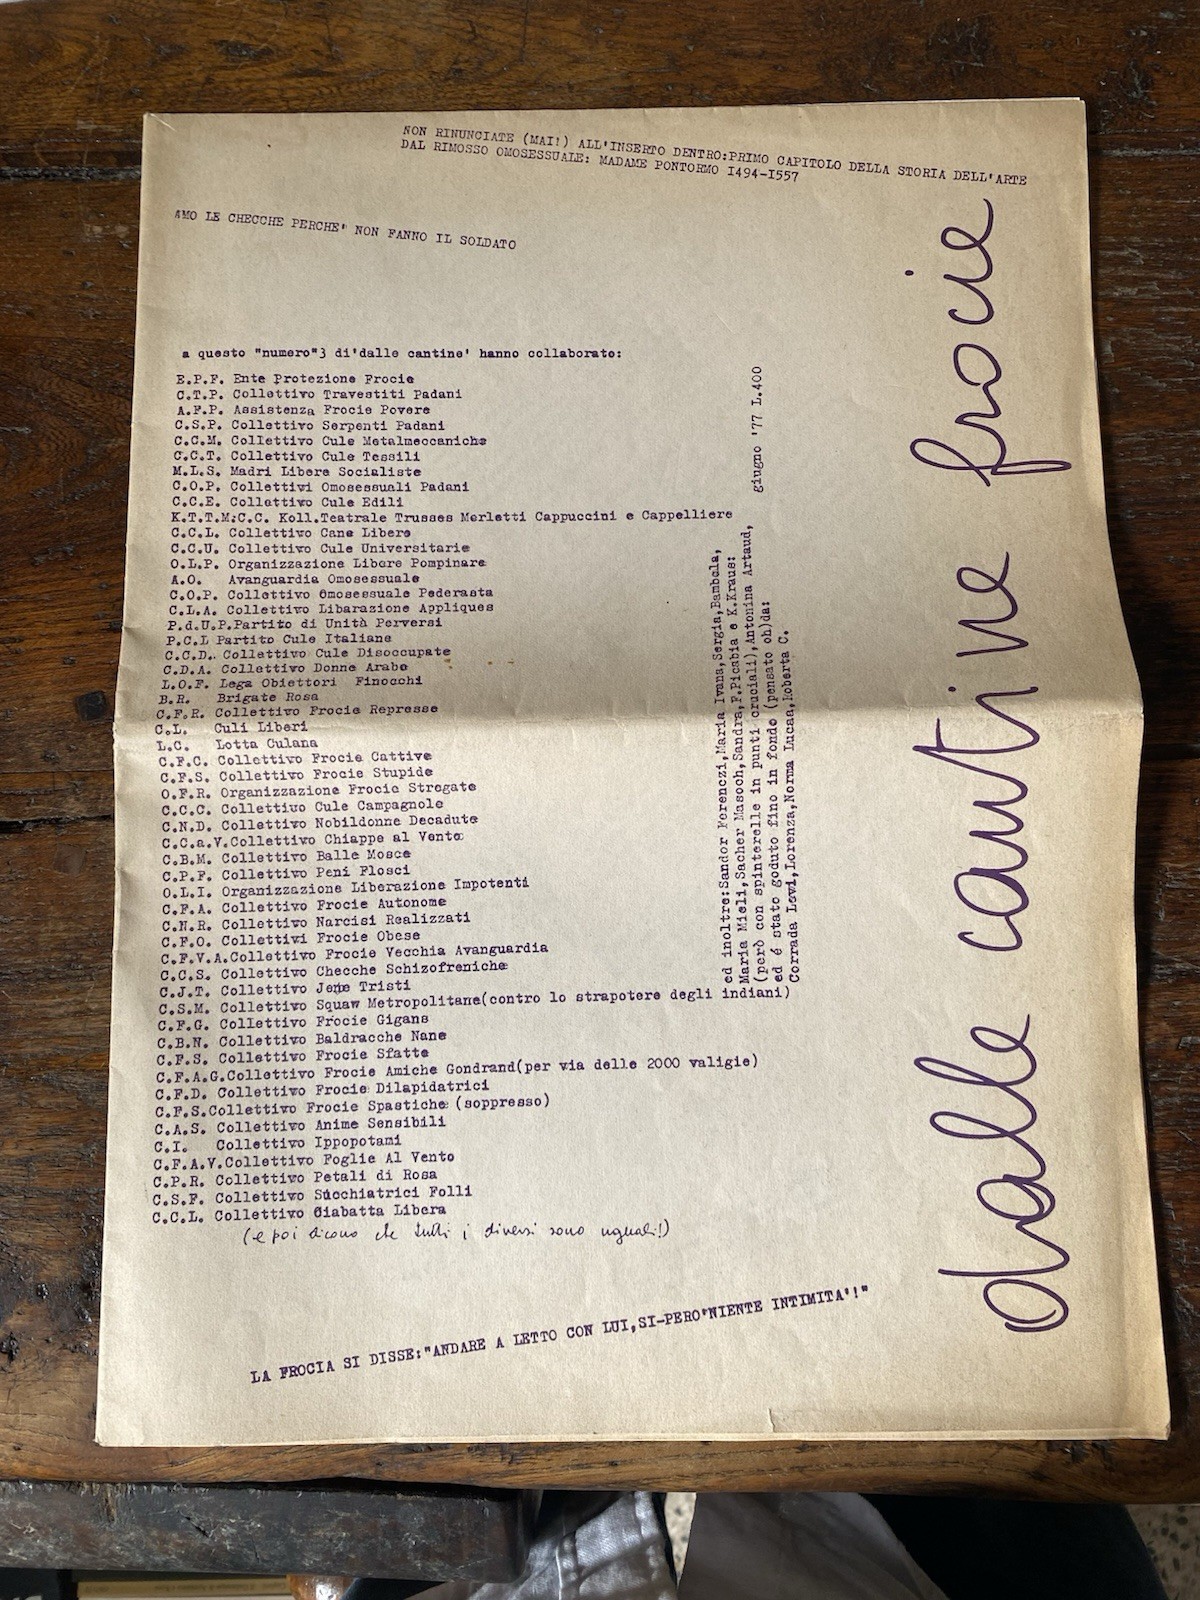 NON RINUNCIATE (MAI!) ALL'INSERTO DENTRO:PRIMO CAPITOLO DELLA STORIA DELL'ARTE
DAL RIMOSSO OMOSESSUALE: MADAME PONTORMO I494-I557
AMO LE CHECCHE PERCHE' NON FANNO IL SOLDATO
a questo "numero"3 di'dalle cantine' hanno collaborato:
E.P.F. Ente Protezione Frocie
C.T.P. Collettivo Travestiti Padani
A.F.P. Assistenza Frocie Povere
C.S.P. Collettivo Serpenti Padani
C.C.M. Collettivo Cule Metalmeccaniche
C.C.T. Collettivo Cule Tessili
M.L.S. Madri Libere Socialiste
C.O.P. Collettivi Omosessuali Padani
C.C.E. Collettivo Cule Edili
K.T.T.M:C.C. Koll.Teatrale Trusses Merletti Cappuccini e Cappelliere
C.C.L. Collettivo Cane Libero
C.C.U. Collettivo Cule Universitarie
O.L.P. Organizzazione Libere Pompinare
A.O. Avanguardia Omosessuale
C.O.P. Collettivo Omosessuale Pederasta
C.L.A. Collettivo Libarazione Appliques
P.d.U.P.Partito di Unità Perversi
P.C.I Partito Cule Italiane
C.C.D. Collettivo Cule Disoccupate
C.D.A. Collettivo Donne Arabe
L.O.F. Lega Obiettori Finocchi
B.R. Brigate Rosa
C.F.R. Collettivo Frocie Represse
C.L. Culi Liberi
L.C. Lotta Culana
C.F.C. Collettivo Frocie Cattive
C.F.S. Collettivo Frocie Stupide
O.F.R. Organizzazione Frocie Stregate
C.C.C. Collettivo Cule Campagnole
C.N.D. Collettivo Nobildonne Decadute
C.C.a.V.Collettivo Chiappe al Vento
C.B.M. Collettivo Balle Mosce
C.P.F. Collettivo Peni Flosci
O.L.I. Organizzazione Liberazione Impotenti
C.F.A. Collettivo Frocie Autonome
C.N.R. Collettivo Narcisi Realizzati
C.F.O. Collettivi Frocie Obese
C.F.V.A.Collettivo Frocie Vecchia Avanguardia
C.C.S. Collettivo Checche Schizofreniche
C.J.T. Collettivo Jene Tristi
C.S.M. Collettivo Squaw Metropolitane(contro lo strapotere degli indiani)
C.F.G. Collettivo Frocie Gigans
C.B.N. Collettivo Baldracche Nane
C.F.S. Collettivo Frocie Sfatte
C.F.A.G.Collettivo Frocie Amiche Gondrand(per via delle 2000 valigie)
C.F.D. Collettivo Frocie Dilapidatrici
C.F.S.Collettivo Frocie Spastiche (soppresso)
C.A.S. Collettivo Anime Sensibili
C.I. Collettivo Ippopotami
C.F.A.V.Collettivo Foglie Al Vento
C.P.R. Collettivo Petali di Rosa
C.S.F. Collettivo Succhiatrici Folli
C.C.L. Collettivo Ciabatta Libera
(e poi dicono che tutti i diversi sono uguali!)
LA FROCIA SI DISSE:"ANDARE A LETTO CON LUI,SI-PERO'NIENTE INTIMITA'!"
ed inoltre:Sandor Ferenczi,Maria Ivana,Sergia,Bambola,
Maria Mieli,Sacher Masoch,Sandra,F.Picabia e K.Kraus:
(però con spinterelle in punti cruciali),Antonina Artaud,
ed é stato goduto fino in fondo (pensato oh)da:
Corrada Levi,Lorenza,Norma Lucaa,Roberta C.
giugno '77 L.400
dalle cantine frocie